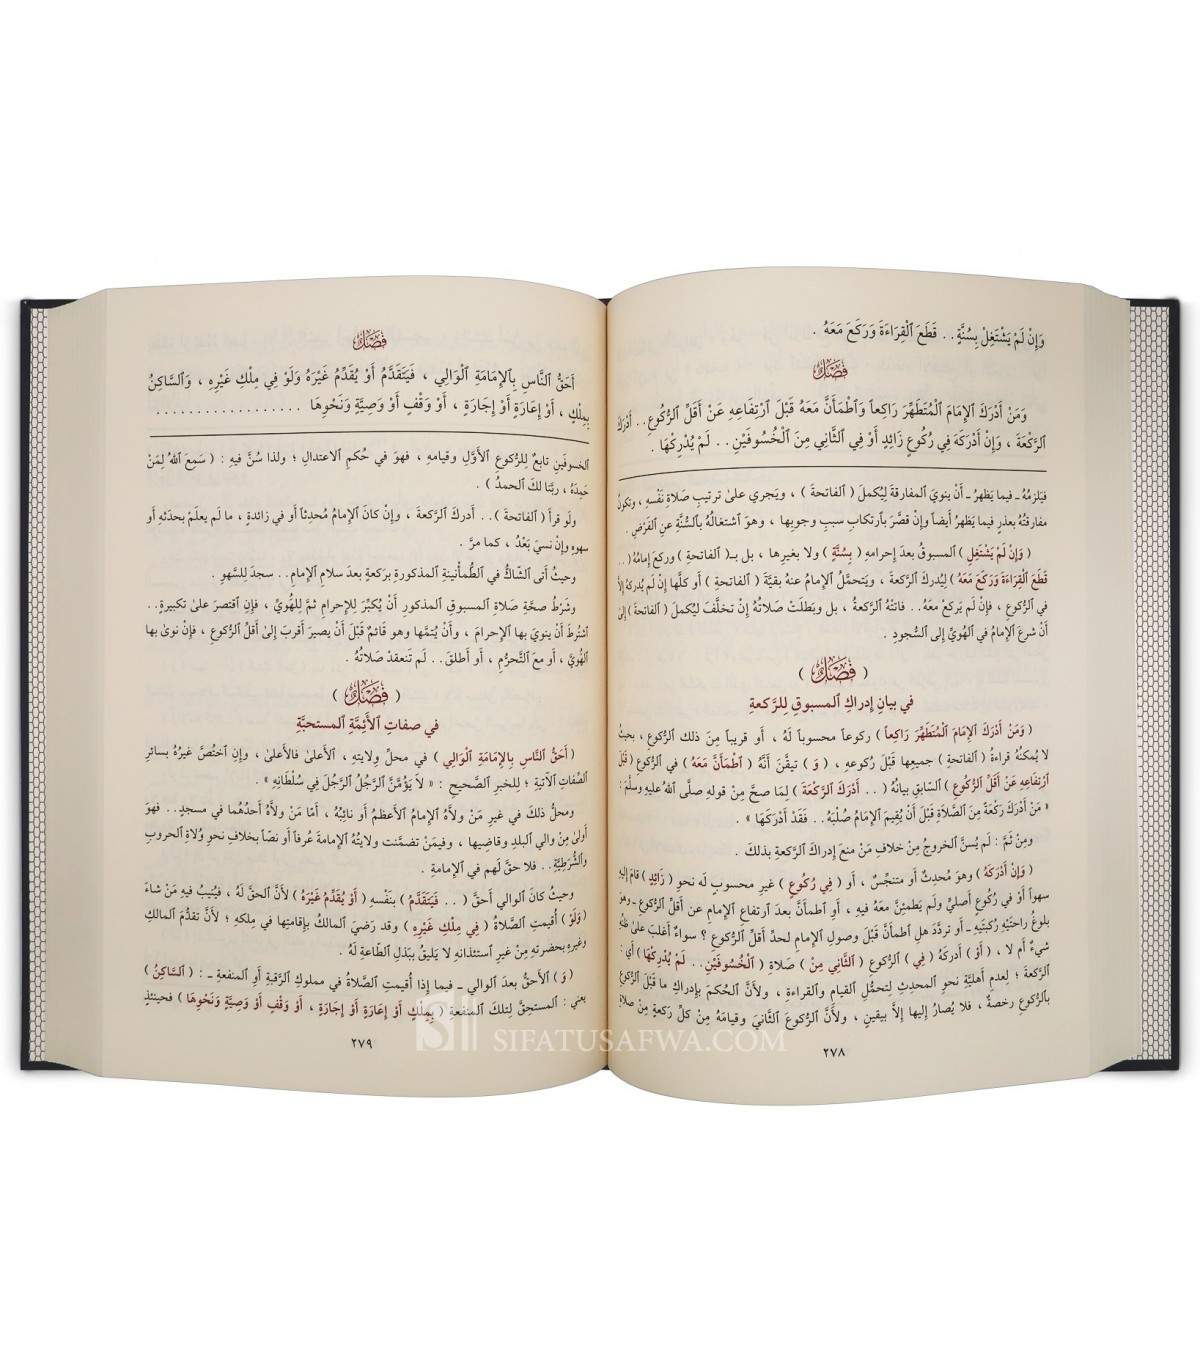 وَإِنْ لَمْ يَشْتَغِلْ بِسُنَّةٍ . . قَطَعَ ٱلْقِرَاءَةَ وَرَكَعَ مَعَهُ .
فَصْلٌ
وَمَنْ أَدْرَكَ ٱلإِمَامَ ٱلْمُتَطَهِّرَ رَاكِعاً وَٱطْمَأَنَّ مَعَهُ قَبْلَ ٱرْتِفَاعِهِ عَنْ أَقَلِّ ٱلرُّكُوعِ . . أَدْرَكَ
ٱلرَّكْعَةَ ، وَإِنْ أَدْرَكَهُ فِي رُكُوعٍ زَائِدٍ أَوْ فِي ٱلثَّانِي مِنَ ٱلْخُسُوفَيْنِ . . لَمْ يُدْرِكْهَا .
فيلزمُهُ ـ فيما يَظهرُ ـ أَنْ ينويَ ٱلمفارقةَ لِيُكملَ ( ٱلفاتحةَ ) ، ويَجري علىٰ ترتيبِ صَلاةِ نَفْسِهِ ، وتكونُ
مفارقتُهُ بعذرٍ فيما يَظهرُ أَيضاً وإنْ قصَّرَ بٱرتكابِ سببِ وجوبِها ، وهوَ ٱشتغالُهُ بٱلسُّنَّةِ عنِ ٱلفَرْضِ .
( وَإِنْ لَمْ يَشْتَغِلِ ) ٱلمسبوقُ بعدَ إِحرامِهِ ( بِسُنَّةٍ ) ولا بغيرِها ، بل بـ( ٱلفاتحةِ ) وركعَ إِمامُهُ ( . .
قَطَعَ ٱلْقِرَاءَةَ وَرَكَعَ مَعَهُ ) لِيُدركَ ٱلرَّكعةَ ، ويَتحمَّلُ ٱلإِمامُ عنهُ بقيَّةَ ( ٱلفاتحةِ ) أَو كلَّها إِنْ لم يُدركْهُ إِلاَّ
في ٱلرُّكوعِ ، فإِنْ لم يَركعْ معَهُ . . فاتتْهُ ٱلرَّكعةُ ، بل وبَطلَتْ صَلاتُهُ إِنْ تخلَّفَ لِيُكملَ ( ٱلفاتحةَ ) إِلىٰ
أَنْ شرعَ ٱلإِمامُ في ٱلهُوِيِّ إِلى ٱلسُّجودِ .
( فَصْلٌ )
في بيانِ إدراكِ ٱلمسبوقِ لِلرَّكعةِ
( وَمَنْ أَدْرَكَ ٱلإِمَامَ ٱلْمُتَطَهِّرَ رَاكِعاً ) ركوعاً محسوباً لَهُ ، أَو قريباً مِنْ ذلك ٱلرُّكوعِ ، بحيثُ
لا يُمكنُهُ قراءةُ ( ٱلفاتحةِ ) جميعِها قَبْلَ ركوعِهِ ، ( وَ ) تيقَّنَ أَنَّهُ ( ٱطْمَأَنَّ مَعَهُ ) في ٱلرُّكوعِ ( قَبْلَ
ٱرْتِفَاعِهِ عَنْ أَقَلِّ ٱلرُّكُوعِ ) ٱلسَّابقِ بيانُهُ ( . . أَدْرَكَ ٱلرَّكْعَةَ ) لِمَا صحَّ مِنْ قولِهِ صلَّى ٱللهُ عليهِ وسلَّمَ :
« مَنْ أَدْرَكَ رَكْعَةً مِنَ ٱلصَّلاَةِ قَبْلَ أَنْ يُقِيمَ ٱلإِمَامُ صُلْبَهُ . . فَقَدْ أَدْرَكَهَا » .
ومِنْ ثَمَّ : لَم يُسنَّ ٱلخروجُ مِنْ خلافِ مَنْ منعَ إِدراكَ ٱلرَّكعةِ بذلكَ .
( وَإِنْ أَدْرَكَهُ ) وهوَ مُحدِثٌ أَو متنجِّسٌ ، أَو ( فِي رُكُوعٍ ) غيرِ محسوبٍ لَه نحوِ ( زَائِدٍ ) قامَ إِليهِ
سهواً أَو في ركوعٍ أَصليٍّ ولَم يَطمئِنَّ معَهُ فيهِ ، أَوِ ٱطمأَنَّ بعدَ ٱرتفاعِ ٱلإِمامِ عن أَقلِّ ٱلرُّكوعِ ـ وهوَ
بلوغُ راحتَيْهِ رُكبتَيْهِ ـ أَو تردَّدَ هلِ ٱطمأَنَّ قَبْلَ وصولِ ٱلإِمامِ لحدِّ أَقلِّ ٱلرُّكوعِ ؟ سواءٌ أَغلبَ علىٰ ظنِّهِ
شيءٌ أَم لا ، ( أَوْ ) أَدركَهُ ( فِي ) ٱلرُّكوعِ ( ٱلثَّانِي مِنْ ) صَلاةِ ( ٱلْخُسُوفَيْنِ . . لَمْ يُدْرِكْهَا ) أَي :
ٱلرَّكعةَ ؛ لعدمِ أَهليَّةِ نحوِ ٱلمحدِثِ لِتحمُّلِ ٱلقيامِ وٱلقراءةِ ، ولأَنَّ ٱلحُكمَ بإِدراكِ ما قَبْلَ ٱلرُّكوعِ
بٱلرُّكوعِ رخصةٌ ، فلا يُصارُ إِليها إِلاَّ بيقينٍ ، ولأَنَّ ٱلرُّكوعَ ٱلثَّانيَ وقيامَهُ مِنْ كلِّ ركعةٍ مِنْ صلاةِ
٢٧٨
فَصْلٌ
أَحَقُّ ٱلنَّاسِ بِٱلإِمَامَةِ ٱلْوَالِي ، فَيَتَقَدَّمُ أَوْ يُقَدِّمُ غَيْرَهُ وَلَوْ فِي مِلْكِ غَيْرِهِ ، وَٱلسَّاكِنُ
بِمِلْكٍ ، أَوْ إِعَارَةٍ أَوْ إِجَارَةٍ ، أَوْ وَقْفٍ أَوْ وَصِيَّةٍ وَنَحْوِهَا . . . . . . . . . . . . . . . . .
ٱلخسوفَينِ تابعٌ لِلرُّكوعِ ٱلأَوَّلِ وقيامِهِ ، فهوَ في حُكمِ ٱلاعتدالِ ؛ ولذا سُنَّ فيهِ : ( سَمِعَ ٱللهُ لِمَنْ
حَمِدَهُ ، ربَّنا لكَ ٱلحمدُ ) .
ولَو قرأَ ( ٱلفاتحةَ ) . . أَدركَ ٱلرَّكعةَ ، وإِنْ كانَ ٱلإِمامُ مُحدِثاً أَو في زائدةٍ ، ما لَم يعلَمْ بحدثِهِ أَو
سهوِهِ وإِنْ نسيَ بَعْدُ ، كما مرَّ .
وحيثُ أَتى ٱلشَّاكُّ في ٱلطُّمأْنينةِ ٱلمذكورةِ برَكعةٍ بعدَ سلامِ ٱلإِمامِ . . سجدَ للسَّهوِ .
وشَرْطُ صحَّةِ صَلاةِ ٱلمسبوقِ ٱلمذكورِ أَنْ يُكبِّرَ لِلإِحرامِ ثمَّ لِلهُوِيِّ ، فإِنِ ٱقتصرَ علىٰ تكبيرةٍ . .
ٱشتُرطَ أَنْ ينويَ بها ٱلإِحرامَ ، وأَنْ يُتمَّها وهو قائمٌ قَبْلَ أَنْ يصيرَ أَقربَ إِلىٰ أَقلِّ ٱلرُّكوعِ ، فإِنْ نوىٰ بها
ٱلهُوِيَّ ، أَو معَ ٱلتَّحرُّمِ ، أَو أَطلقَ . . لَم تَنعقدْ صَلاتُهُ .
( فَصْلٌ )
في صفاتِ ٱلأَئمَّةِ ٱلمستحبَّةِ
( أَحَقُّ ٱلنَّاسِ بِٱلإِمَامَةِ ٱلْوَالِي ) في محلِّ وِلايتِهِ ، ٱلأَعلىٰ فٱلأَعلىٰ ، وإِنِ ٱختُصَّ غيرُهُ بسائرِ
ٱلصِّفاتِ ٱلآتيةِ ؛ لِلخبرِ ٱلصَّحيحِ : « لاَ يَؤُمَّنَّ ٱلرَّجُلُ ٱلرَّجُلَ فِي سُلْطَانِهِ » .
ومحلُّ ذلكَ في غيرِ مَنْ ولاَّهُ ٱلإِمامُ ٱلأَعظمُ أَو نائبُهُ ، أَمَّا مَنْ ولاَّهُ أَحدُهُما في مسجدٍ . . فهوَ
أَولىٰ مِنْ والي ٱلبلدِ وقاضيها ، وفيمَنْ تضمَّنت ولايتُهُ ٱلإِمامةَ عُرفاً أَو نصّاً بخلافِ نحوِ وُلاةِ ٱلحروبِ
وٱلشُّرطيَّةِ . . فلا حقَّ لَهم في ٱلإِمامةِ .
وحيثُ كانَ ٱلوالي أَحقَّ ( . . فَيَتَقَدَّمُ ) بنَفْسِهِ ( أَوْ يُقَدِّمُ غَيْرَهُ ) لأَنَّ ٱلحقَّ لَهُ ، فيُنيبُ فيهِ مَنْ شاءَ
( وَلَوْ ) أُقيمتِ ٱلصَّلاةُ ( فِي مِلْكِ غَيْرِهِ ) وقد رَضيَ ٱلمالكُ بإِقامتِها في ملكِهِ ؛ لأَنَّ تقدُّمَ ٱلمالكِ
وغيرِهِ بحضرتِهِ مِنْ غيرِ ٱستئذانِهِ لا يَليقُ ببَذلِ ٱلطَّاعةِ لَهُ .
( وَ ) ٱلأَحقُّ بعدَ ٱلوالي ـ فيما إِذا أُقيمتِ ٱلصَّلاةُ في مملوكِ ٱلرَّقبةِ أَوِ ٱلمنفعةِ ـ : ( ٱلسَّاكِنُ )
يعني : ٱلمستحِقَّ لِتلكَ ٱلمنفعةِ ( بِمِلْكٍ أَوْ إِعَارَةٍ أَوْ إِجَارَةٍ ، أَوْ وَقْفٍ أَوْ وَصِيَّةٍ وَنَحْوِهَا ) فحينئذٍ
٢٧٩
SIFATUSAFWA.COM